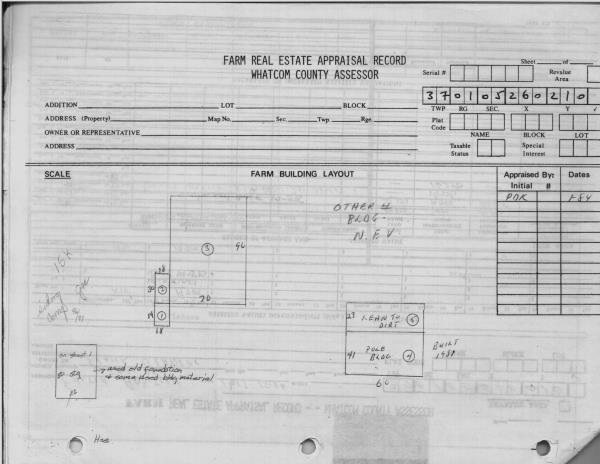 FARM REAL ESTATE APPRAISAL RECORD
WHATCOM COUNTY ASSESSOR
Sheet ___ of ___
Serial #
Revalue Area
3 7 0 1 0 5 2 6 0 2 1 0
TWP RG SEC. X Y
Plat Code
NAME BLOCK LOT
Taxable Status
Special Interest
ADDITION LOT BLOCK
ADDRESS (Property) Map No. Sec. Twp Rge.
OWNER OR REPRESENTATIVE
ADDRESS
SCALE
FARM BUILDING LAYOUT
Appraised By: Dates
Initial #
PDK 1-84
OTHER
BLDG-
N.E.V
3
90
70
18
2
14 1
18
23 LEAN TO 5
DIRT
41 POLE 4
BLDG
60
BUILT
1981
on sheet 1
used old foundation
& some blood bldg material